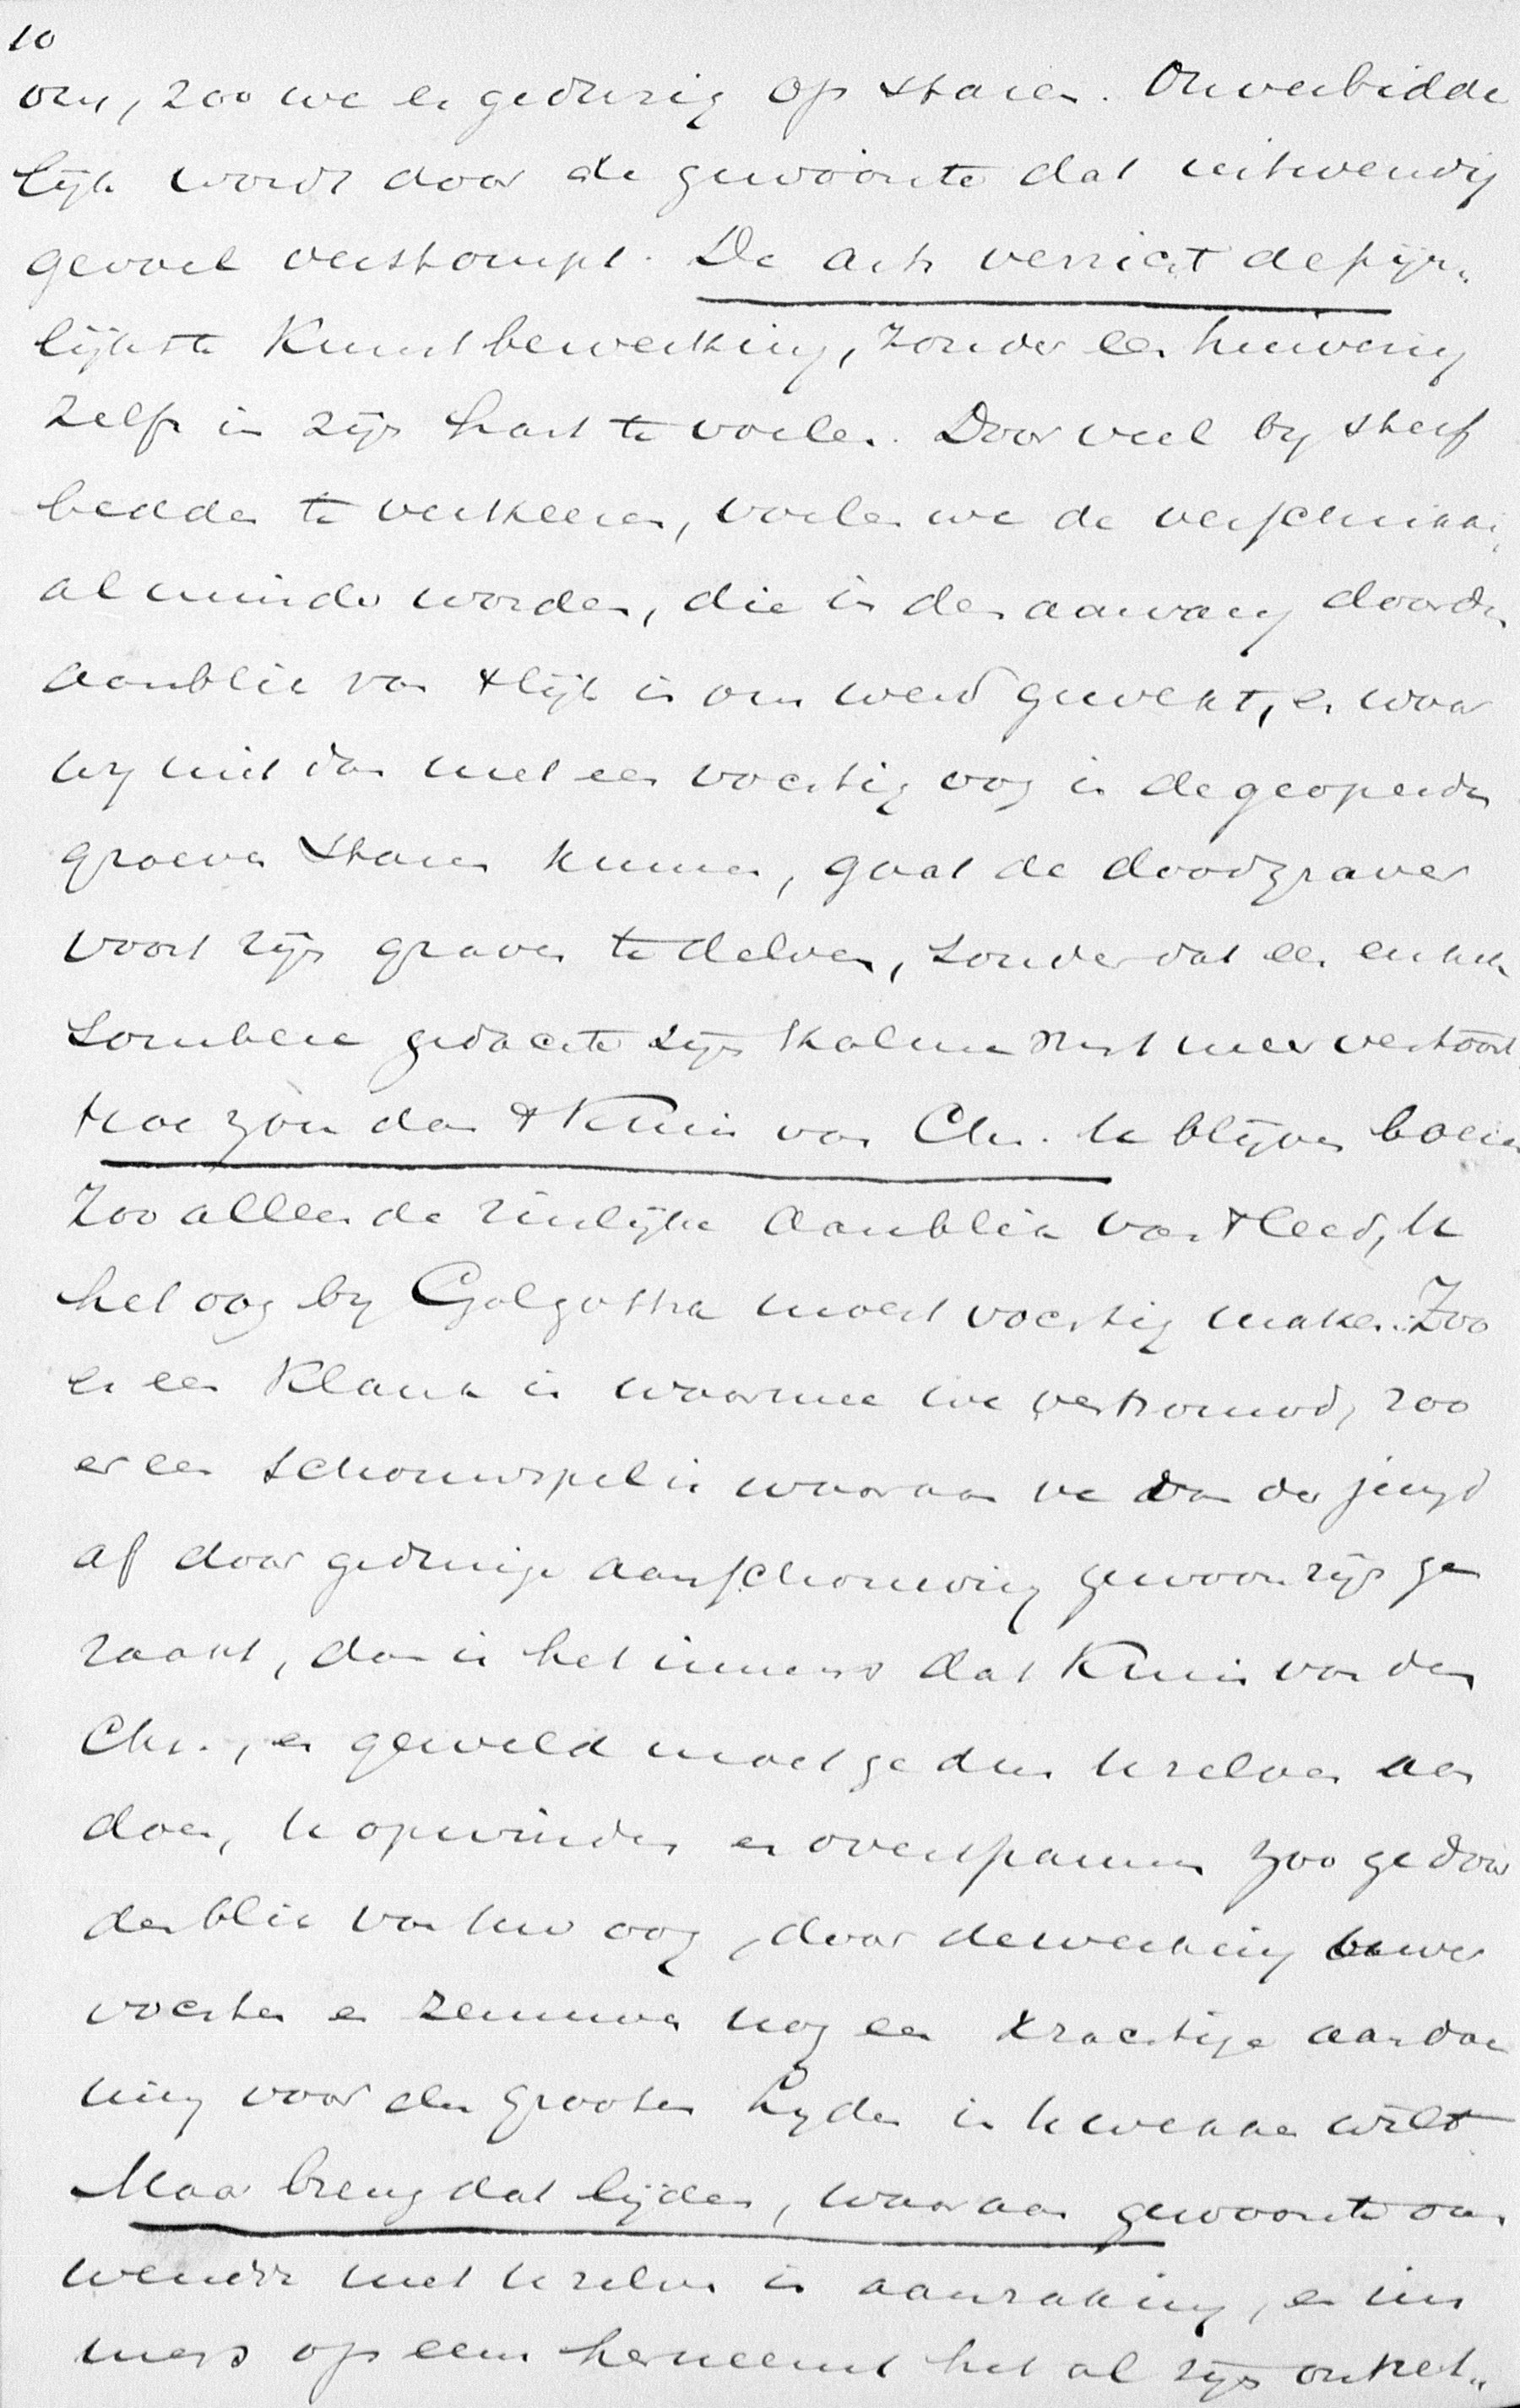 10
ons, zoo we er gedurig op staren. Onverbidde
lijk wordt door de gewoonte dat uitwendig
gevoel verstompt. De arts verricht de pijn„
lijkste kunstbewerking, zonder een huivering
zelfs in zijn hart te voelen. Door veel by sterf
bedden te verkeeren, voelen we de versch
al minder worden, die in den aanvang door den
aanblik van 't lijk in ons werd gewekt, en waar
wy niet dan met een vochtig oog in de geopende
groeve staren kunnen, gaat de doodgraver
voort zijn graven te delven, zonder dat een enkele
sombere gedachte zijn kalme rust meer verstoort.
Hoe zou dan 't Kruis van Chr. U blijven boeien
Zoo alleen de zinlijke aanblik van 't leed, U
het oog by Golgotha moest vochtig maken. Zoo
er een klank is waarmee we vertrouwd, zoo
er een schouwspel is waaraan we van der jeugd
af door gedurige aanschouwing gewoon zijn ge
raakt, dan is het immers dat Kruis van den
Chr., en geweld moet ge dus Uzelven aan
doen, U opwinden en overspannen zoo ge door
den blik van Uw oog, door de werking Uwer
vochten en zenuwen nog een krachtige aandoe
ning voor den grooten Lyder in U wekken wilt
Maar breng dat lijden, waaraan gewoonte ons
wendt met Uzelven in aanraking, en im
mers op eens herneemt het al zijn ontzet„